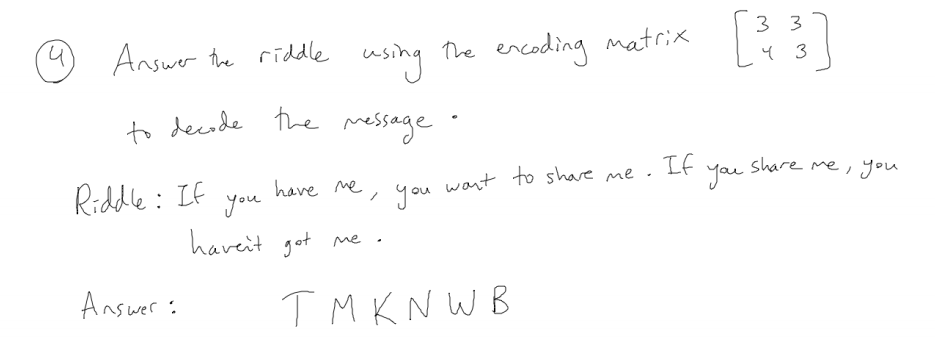 ④ Answer the riddle using the encoding matrix [3 3
4 3]
to decode the message.
Riddle: If you have me, you want to share me. If you share me, you
haven't got me.
Answer: TMKNWB